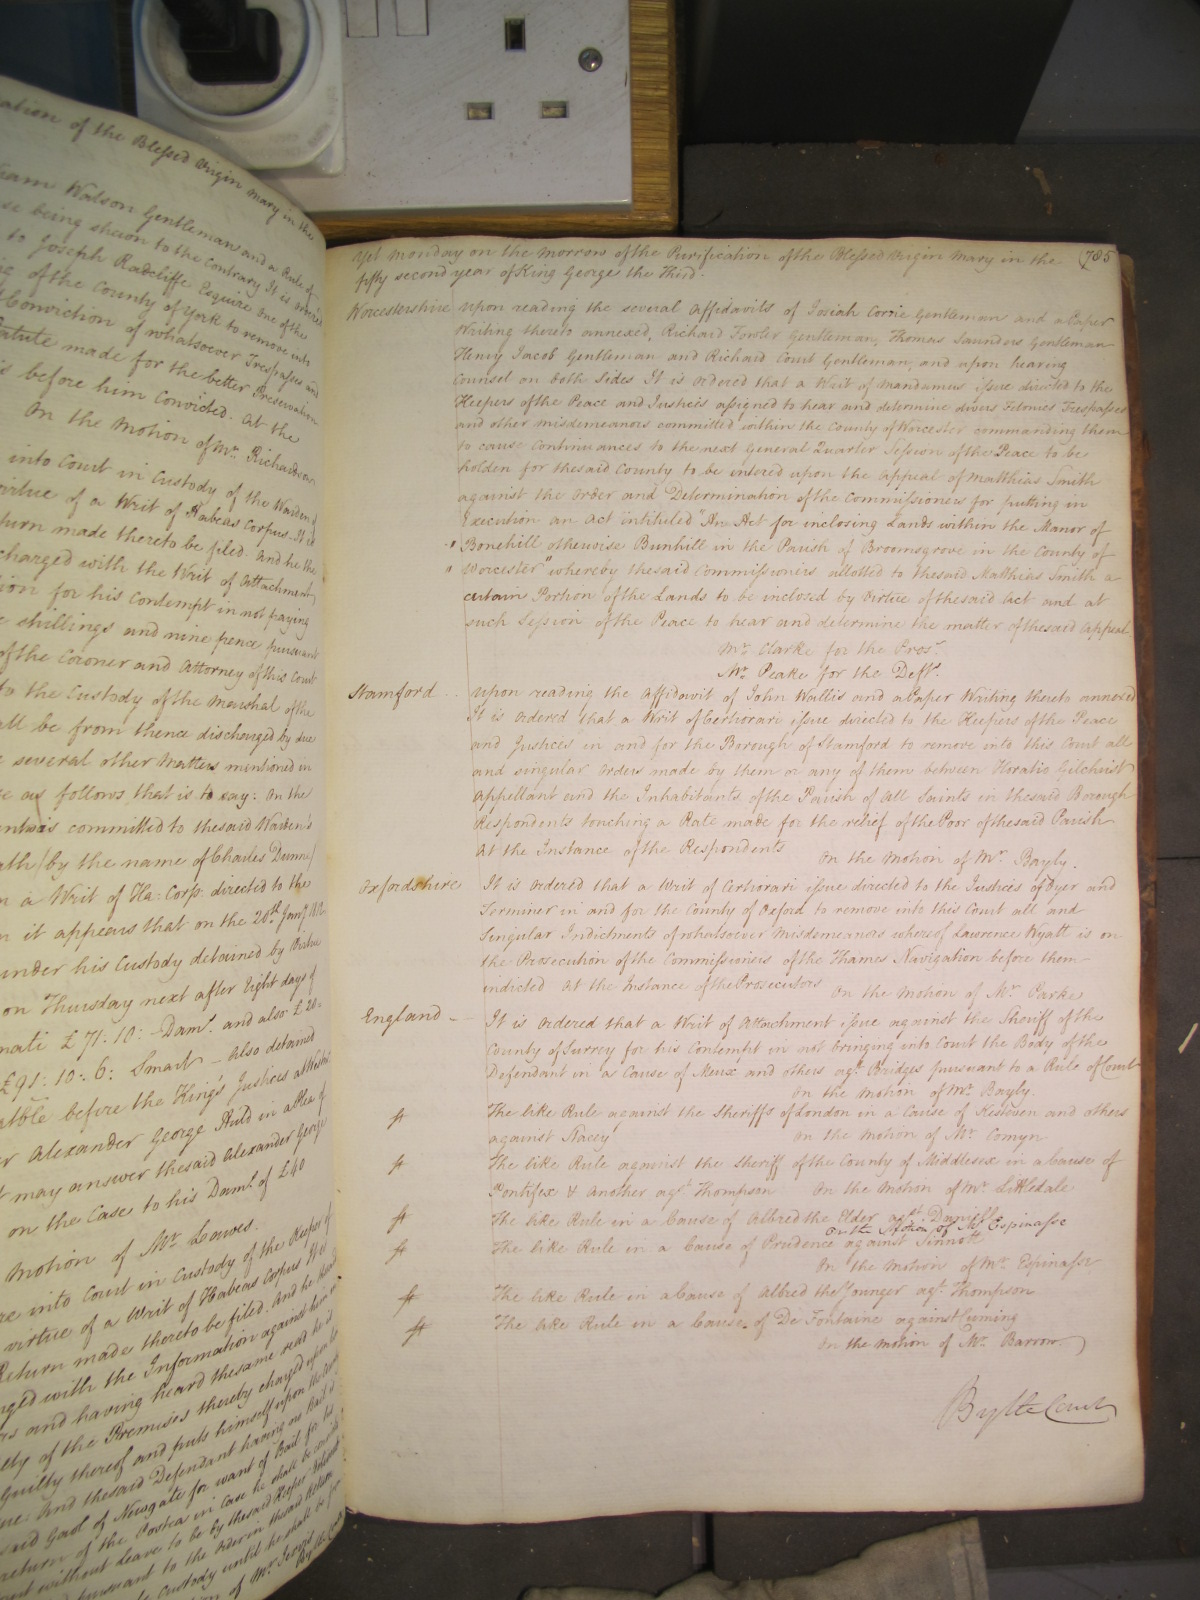 ation of the Blessed Virgin Mary in the
iam Watson Gentleman and a Rule of
se being shewn to the Contrary It is ordered
to Joseph Radcliffe Esquire one of the
of the County of York to remove into
Conviction of whatsoever Trespasses and
Statute made for the better Preservation
is before him Convicted. At the
On the Motion of Mr. Richardson
into Court in Custody of the Warden of
virtue of a Writ of Habeas Corpus. It is
turn made thereto be filed. And he the
charged with the Writ of Attachment
for his Contempt in not paying
shillings and nine pence pursuant
of the Coroner and Attorney of this Court
to the Custody of the Marshal of the
all be from thence discharged by due
several other Matters mentioned in
as follows that is to say: On the
committed to the said Warden's
by the name of Charles Dunne
a Writ of Ha: Corp: directed to the
it appears that on the 20th Jany
under his Custody detained by Virtue
on Thursday next after Eight days of
£71: 10: Dams. and also £20
£91: 10: 6: Smart – Also detained
before the King's Justices at
Alexander George Auld in a Plea of
may answer the said Alexander George
on the Case to his Dams. of £40
Motion of Mr. Lawes.
into Court in Custody of the Keeper of
virtue of a Writ of Habeas Corpus
Return made thereto be filed. And he
with the Information against him
and having heard the same read he is
of the Premises thereby charged upon
Guilty thereof and puts himself upon the
And the said Defendant having no Bail
said Gaol of Newgate for want of Bail for his
return of the Postea in Case he shall be
without Leave to be by the said Keeper
pursuant to the Order in the said
Custody until he shall be
of Mr. Jervis
By the Court
Yet Monday on the morrow of the Purification of the Blessed Virgin Mary in the 785
fifty second year of King George the Third.
Worcestershire Upon reading the several Affidavits of Josiah Gentleman and a Paper
Writing thereto annexed, Richard Fowler Gentleman, Thomas Saunders Gentleman
Henry Jacob Gentleman and Richard Court Gentleman, and upon hearing
Counsel on both Sides It is ordered that a Writ of Mandamus issue directed to the
Keepers of the Peace and Justices assigned to hear and determine divers Felonies Trespasses
and other misdemeanors committed within the County of Worcester commanding them
to cause Continuances to the next General Quarter Session of the Peace to be
holden for the said County to be entered upon the Appeal of Matthias Smith
against the Order and Determination of the Commissioners for putting in
Execution an Act intituled "An Act for inclosing Lands within the Manor of
" Bonehill otherwise Bunhill in the Parish of Broomsgrove in the County of
" Worcester" whereby the said Commissioners allotted to the said Matthias Smith a
certain Portion of the Lands to be inclosed by virtue of the said Act and at
such Session of the Peace to hear and determine the matter of the said Appeal
Mr. Clarke for the Prosr.
Mr. Peake for the Defts.
Stamford Upon reading the Affidavit of John Wallis and a Paper Writing thereto annexed
It is ordered that a Writ of Certiorari issue directed to the Keepers of the Peace
and Justices in and for the Borough of Stamford to remove into this Court all
and singular Orders made by them or any of them between Horatio Gilchrist
Appellant and the Inhabitants of the Parish of All Saints in the said Borough
Respondents touching a Rate made for the relief of the Poor of the said Parish
At the Instance of the Respondents On the Motion of Mr. Bayly.
Oxfordshire It is ordered that a Writ of Certiorari issue directed to the Justices of Oyer and
Terminer in and for the County of Oxford to remove into this Court all and
Singular Indictments of whatsoever Misdemeanors whereof Lawrence Wyatt is on
the Prosecution of the Commissioners of the Thames Navigation before them
indicted At the Instance of the Prosecutors On the Motion of Mr. Parke
England It is ordered that a Writ of Attachment issue against the Sheriff of the
County of Surrey for his Contempt in not bringing into Court the Body of the
Defendant in a Cause of Meux and others agt. Bridges pursuant to a Rule of Court
On the motion of Mr. Bayly.
The like Rule against the Sheriffs of London in a Cause of Kesteven and others
against Stacey On the Motion of Mr. Comyn
The like Rule against the Sheriff of the County of Middlesex in a Cause of
Pontifex & Another agt. Thompson On the Motion of Mr. Littledale
The like Rule in a Cause of Albred the Elder agst. Daniell
On the Motion of Mr. Espinasse
The like Rule in a Cause of Prudence against Sinnott
On the Motion of Mr. Espinasse
The like Rule in a Cause of Albred the Younger agt. Thompson
The like Rule in a Cause of De Fontaine against Cuming
On the motion of Mr. Barrow.
By the Court